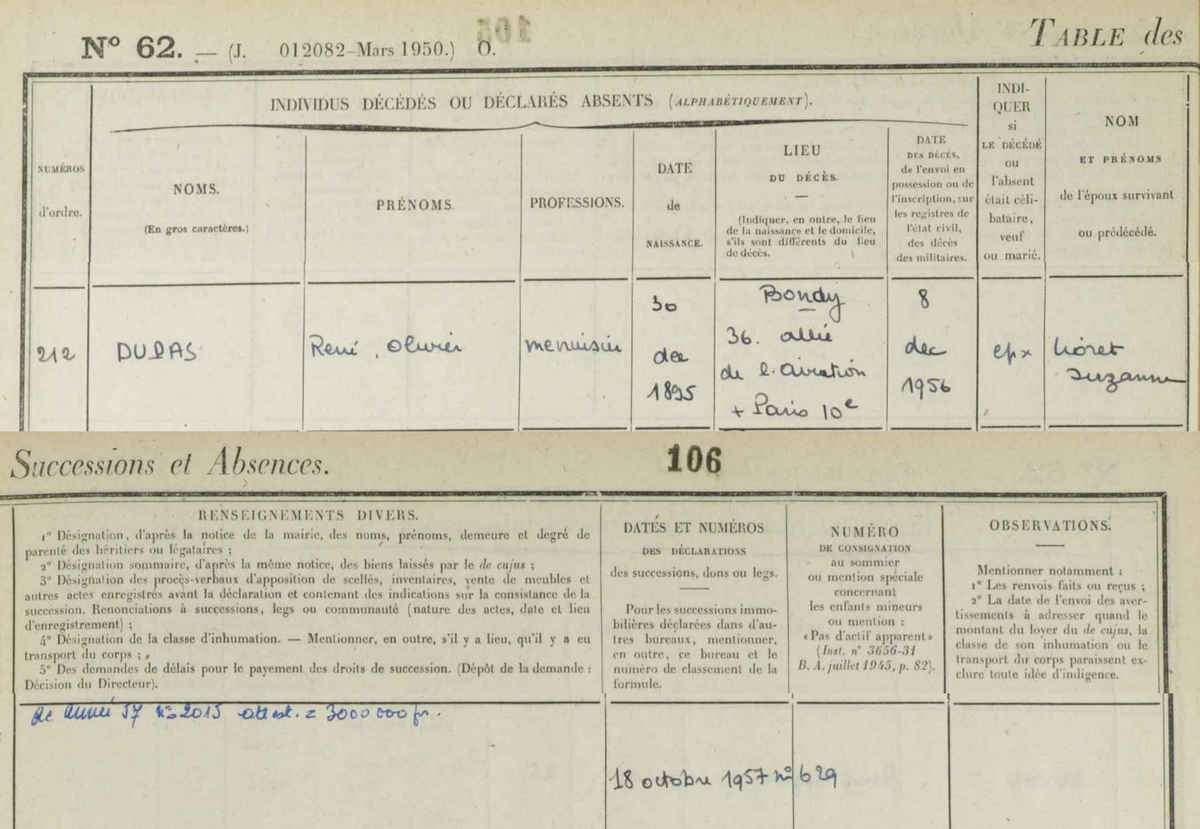 N° 62. — (J. 012082-Mars 1950.) O.
TABLE des
INDIVIDUS DÉCÉDÉS OU DÉCLARÉS ABSENTS (ALPHABÉTIQUEMENT).
NUMÉROS
d'ordre.
NOMS.
(En gros caractères.)
PRÉNOMS.
PROFESSIONS.
DATE
de
NAISSANCE.
LIEU
DU DÉCÈS.
(Indiquer, en outre, le lieu
de la naissance et le domicile,
s'ils sont différents du lieu
de décès.
DATE
DES DÉCÈS,
de l'envoi en
possession ou de
l'inscription, sur
les registres de
l'état civil,
des décès
des militaires.
INDI-
QUER
si
LE DÉCÉDÉ
ou
l'absent
était céli-
bataire,
veuf
ou marié.
NOM
ET PRÉNOMS
de l'époux survivant
ou prédécédé.
212
DUPAS
René, Olivier
menuisier
30
dec
1895
Bondy
36. allée
de l'aviation
+ Paris 10e
8
dec
1956
epx
Lioret
Suzanne
Successions et Absences.
106
RENSEIGNEMENTS DIVERS.
1° Désignation, d'après la notice de la mairie, des noms, prénoms, demeure et degré de
parenté des héritiers ou légataires ;
2° Désignation sommaire, d'après la même notice, des biens laissés par le de cujus ;
3° Désignation des procès-verbaux d'apposition de scellés, inventaires, vente de meubles et
autres actes enregistrés avant la déclaration et contenant des indications sur la consistance de la
succession. Renonciations à successions, legs ou communauté (nature des actes, date et lieu
d'enregistrement) ;
4° Désignation de la classe d'inhumation. — Mentionner, en outre, s'il y a lieu, qu'il y a eu
transport du corps ;
5° Des demandes de délais pour le payement des droits de succession. (Dépôt de la demande :
Décision du Directeur).
DATES ET NUMÉROS
DES DÉCLARATIONS
des successions, dons ou legs.
Pour les successions immo-
bilières déclarées dans d'au-
tres bureaux, mentionner,
en outre, ce bureau et le
numéro de classement de la
formule.
NUMÉRO
DE CONSIGNATION
au sommier
ou mention spéciale
concernant
les enfants mineurs
ou mention :
« Pas d'actif apparent »
(Inst. n° 3656-31
B. A. juillet 1945, p. 82).
OBSERVATIONS.
Mentionner notamment :
1° Les renvois faits ou reçus ;
2° La date de l'envoi des aver-
tissements à adresser quand le
montant du loyer du de cujus, la
classe de son inhumation ou le
transport du corps paraissent ex-
clure toute idée d'indigence.
année 57 n° 2015 = 3000 000 fr.
18 octobre 1957 n° 629